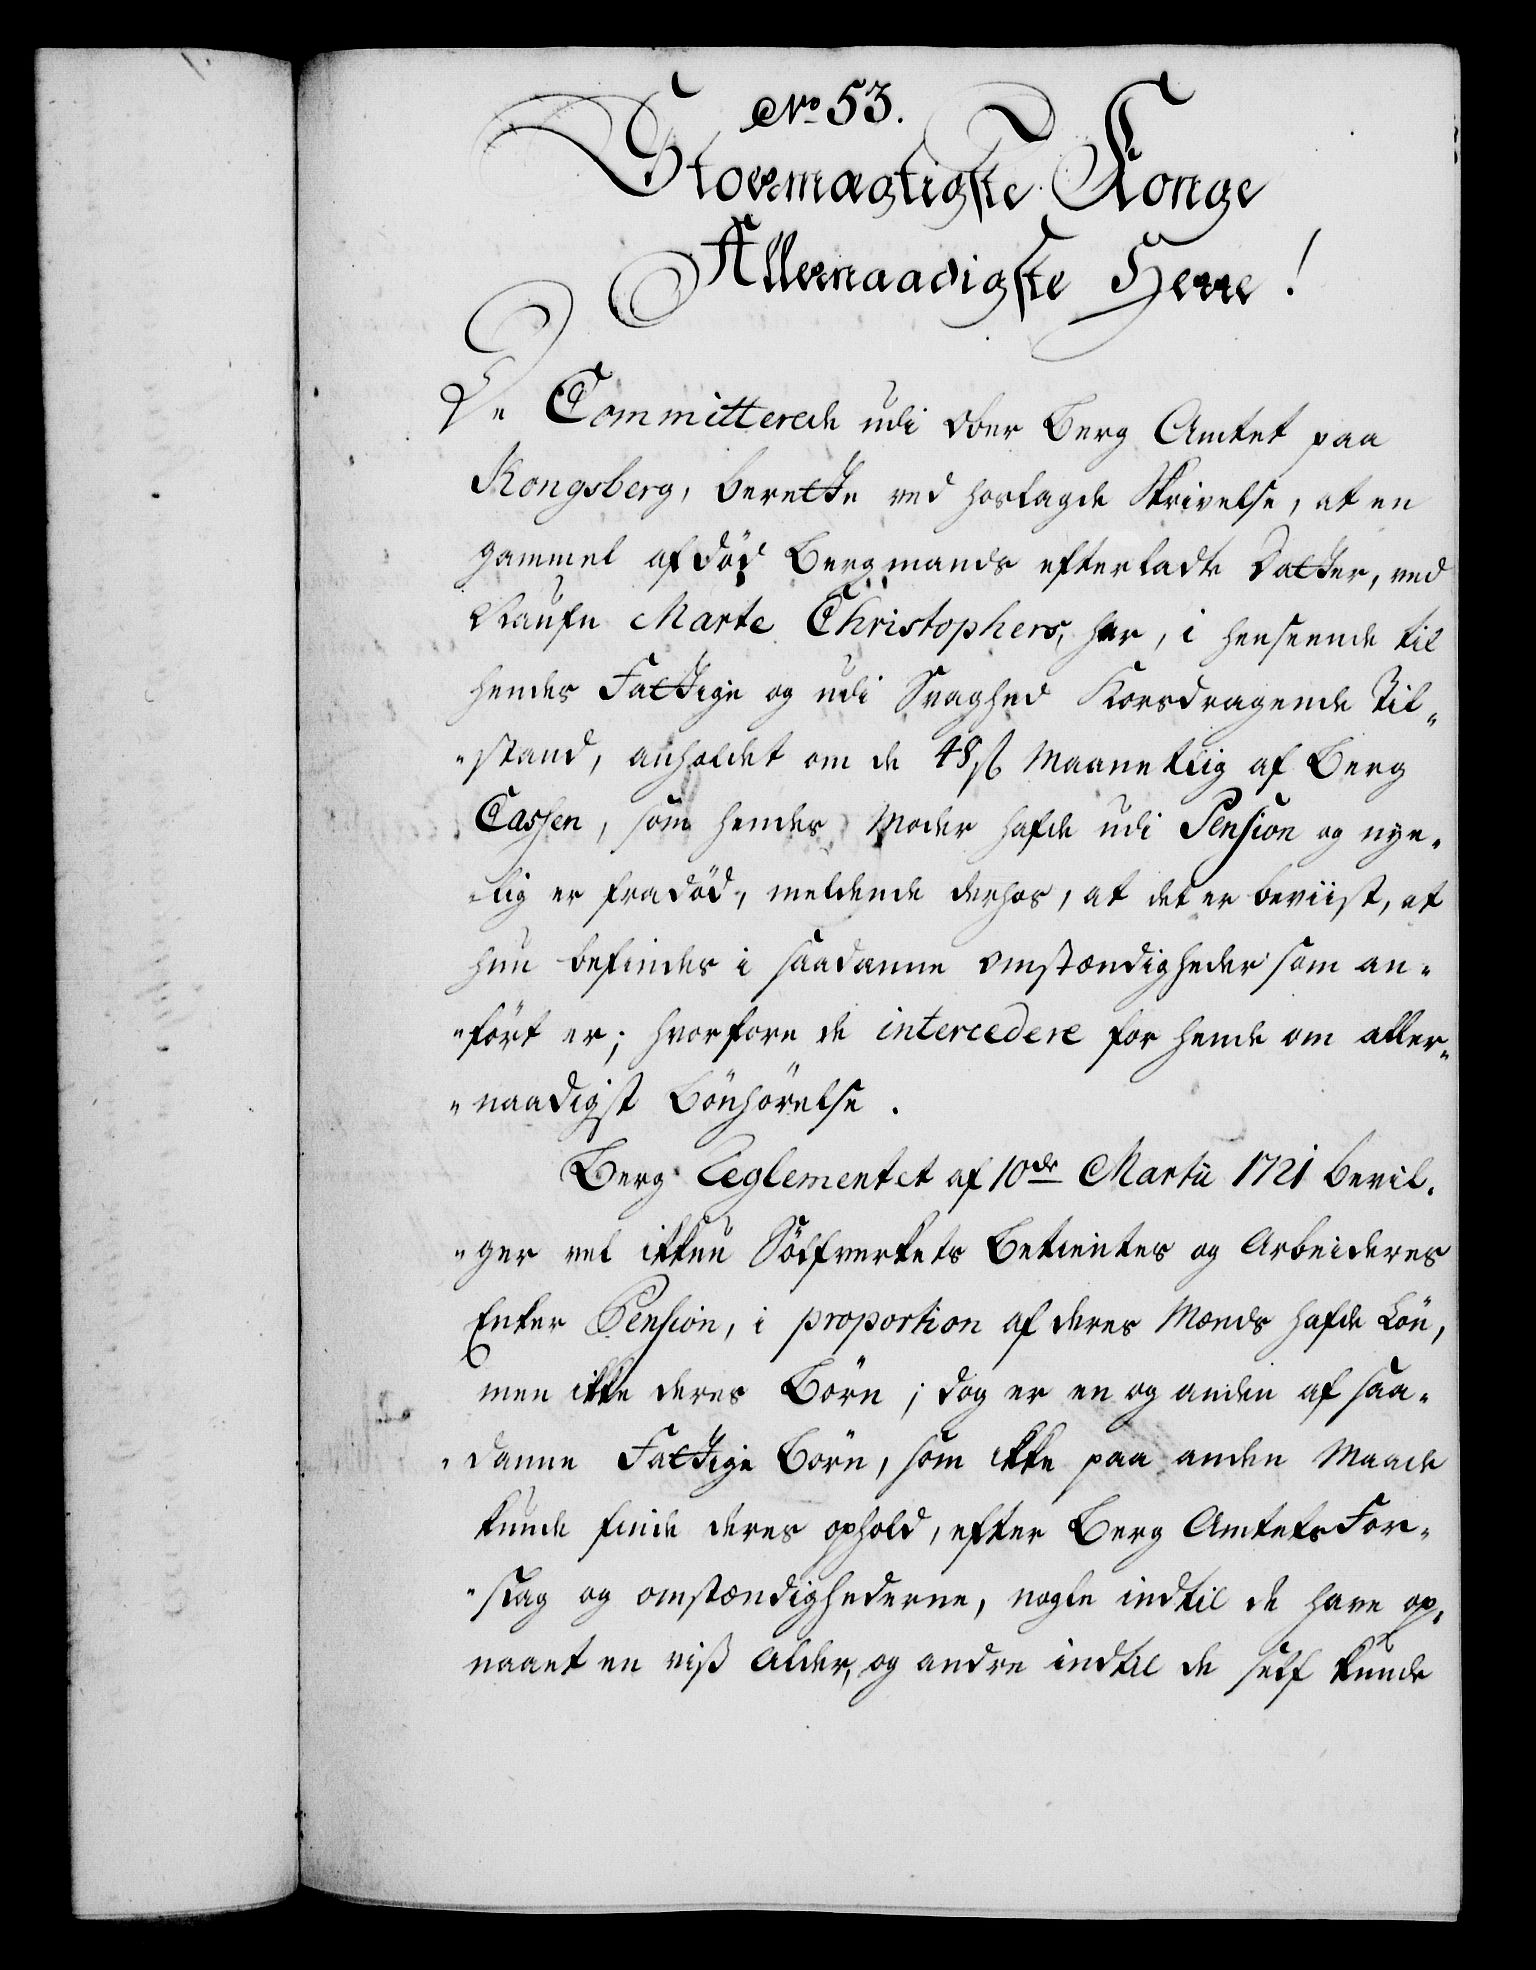 No 53.
Stormægtigste Konge
Allernaadigste Herre!
De Committerede udi Ober Berg Amtet paa
Kongsberg, berette ved hoslagde Skrivelse, at en
gammel afdöd Bergmands efterladte Datter, ved
Naufn Marte Christophers, har, i henseende til
hendes Fattige og udi Svaghed Korsdragende Til„
„stand, anholdet om de 48 ß Maanetlig af Berg
Cassen, som hendes Moder hafde udi Pension og nye„
„lig er fradöd, meldende derhos, at det er beviist, at
hun befindes i saadanne Omstændigheder som an„
„fört er; hvorfore de intercedere for hende om aller„
„naadigst Bönhörelse.
Berg Reglementet af 10de Martii 1721 bevil„
„ger vel ikkun Sölfverkets Betientes og Arbeideres
Enker Pension, i proportion af deres Mænds hafde Lön,
men ikke deres Börn; dog er en og anden af saa„
„danne Fattige Börn, som ikke paa anden Maade
kunde finde deres ophold, efter Berg Amtets For„
„slag og omstændighederne, nogle indtil de have op„
naaet en viß Alder, og andre indtil de self kunde